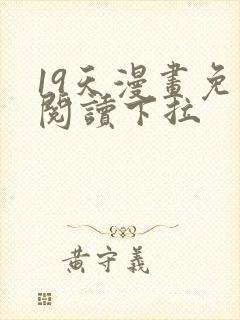 19天漫畫免
閱讀下拉
黃守義